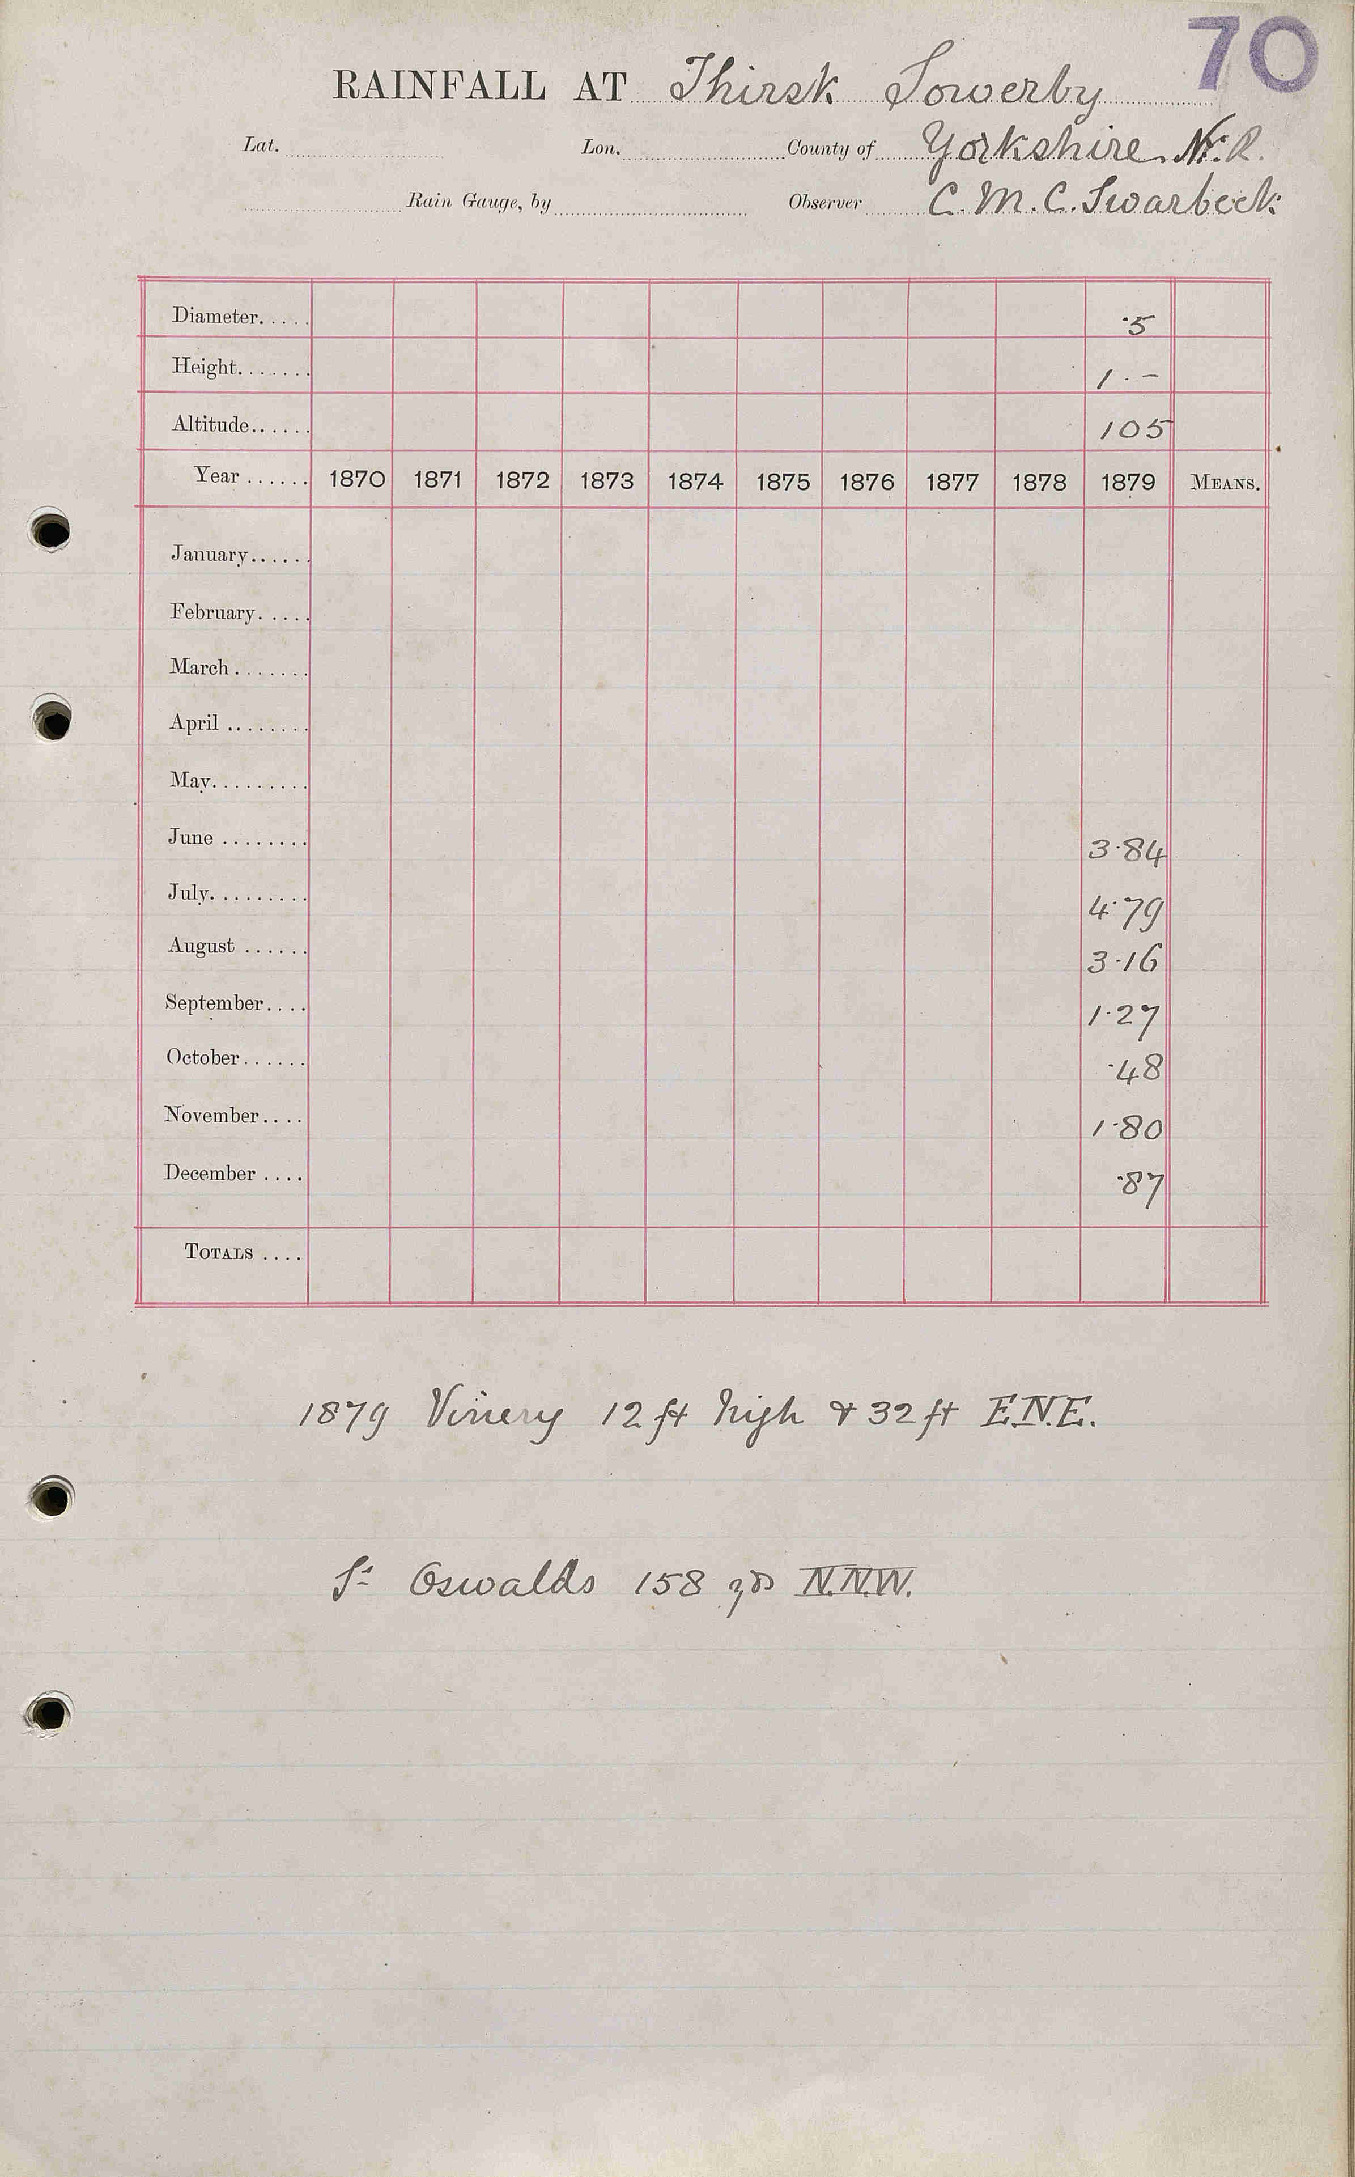 70
RAINFALL AT Thirsk Sowerby
Lat. Lon. County of Yorkshire N.R.
Rain Gauge, by Observer C. M. C. Swarbeck
Diameter..... ·5
Height....... 1 · –
Altitude...... 105
Year ...... 1870 1871 1872 1873 1874 1875 1876 1877 1878 1879 MEANS.
January......
February.....
March.......
April ........
May.........
June ........ 3·84
July......... 4·79
August ...... 3·16
September.... 1·27
October...... ·48
November.... 1·80
December .... ·87
TOTALS ....
1879 Vinery 12 ft high & 32 ft E.N.E.
St Oswalds 158 yds N.N.W.